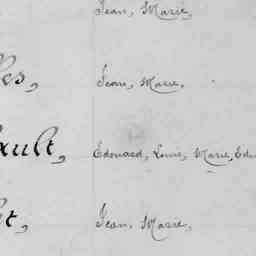 Jean, Marie,
es, Jean, Marie,
ault, Edouard, Louis, Marie, Edm
et, Jean, Marie,